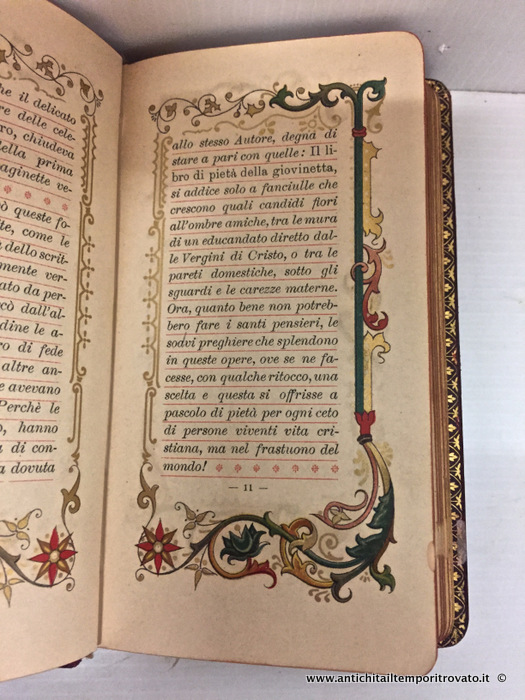 he il delicato
re delle cele-
ro, chiudeva
della prima
aginette ve-
ò queste fo-
te, come le
dello scrit-
mente ver-
ato da per-
cò dall'al-
dine le a-
ro di fede
altre an-
e avevano
Perchè le
o, hanno
a di con-
a dovuta
allo stesso Autore, degna di
stare a pari con quelle: Il li-
bro di pietà della giovinetta,
si addice solo a fanciulle che
crescono quali candidi fiori
all'ombre amiche, tra le mura
di un educandato diretto dal-
le Vergini di Cristo, o tra le
pareti domestiche, sotto gli
sguardi e le carezze materne.
Ora, quanto bene non potreb-
bero fare i santi pensieri, le
soavi preghiere che splendono
in queste opere, ove se ne fa-
cesse, con qualche ritocco, una
scelta e questa si offrisse a
pascolo di pietà per ogni ceto
di persone viventi vita cri-
stiana, ma nel frastuono del
mondo!
— 11 —
www.antichitailtempoRitrovato.it ©